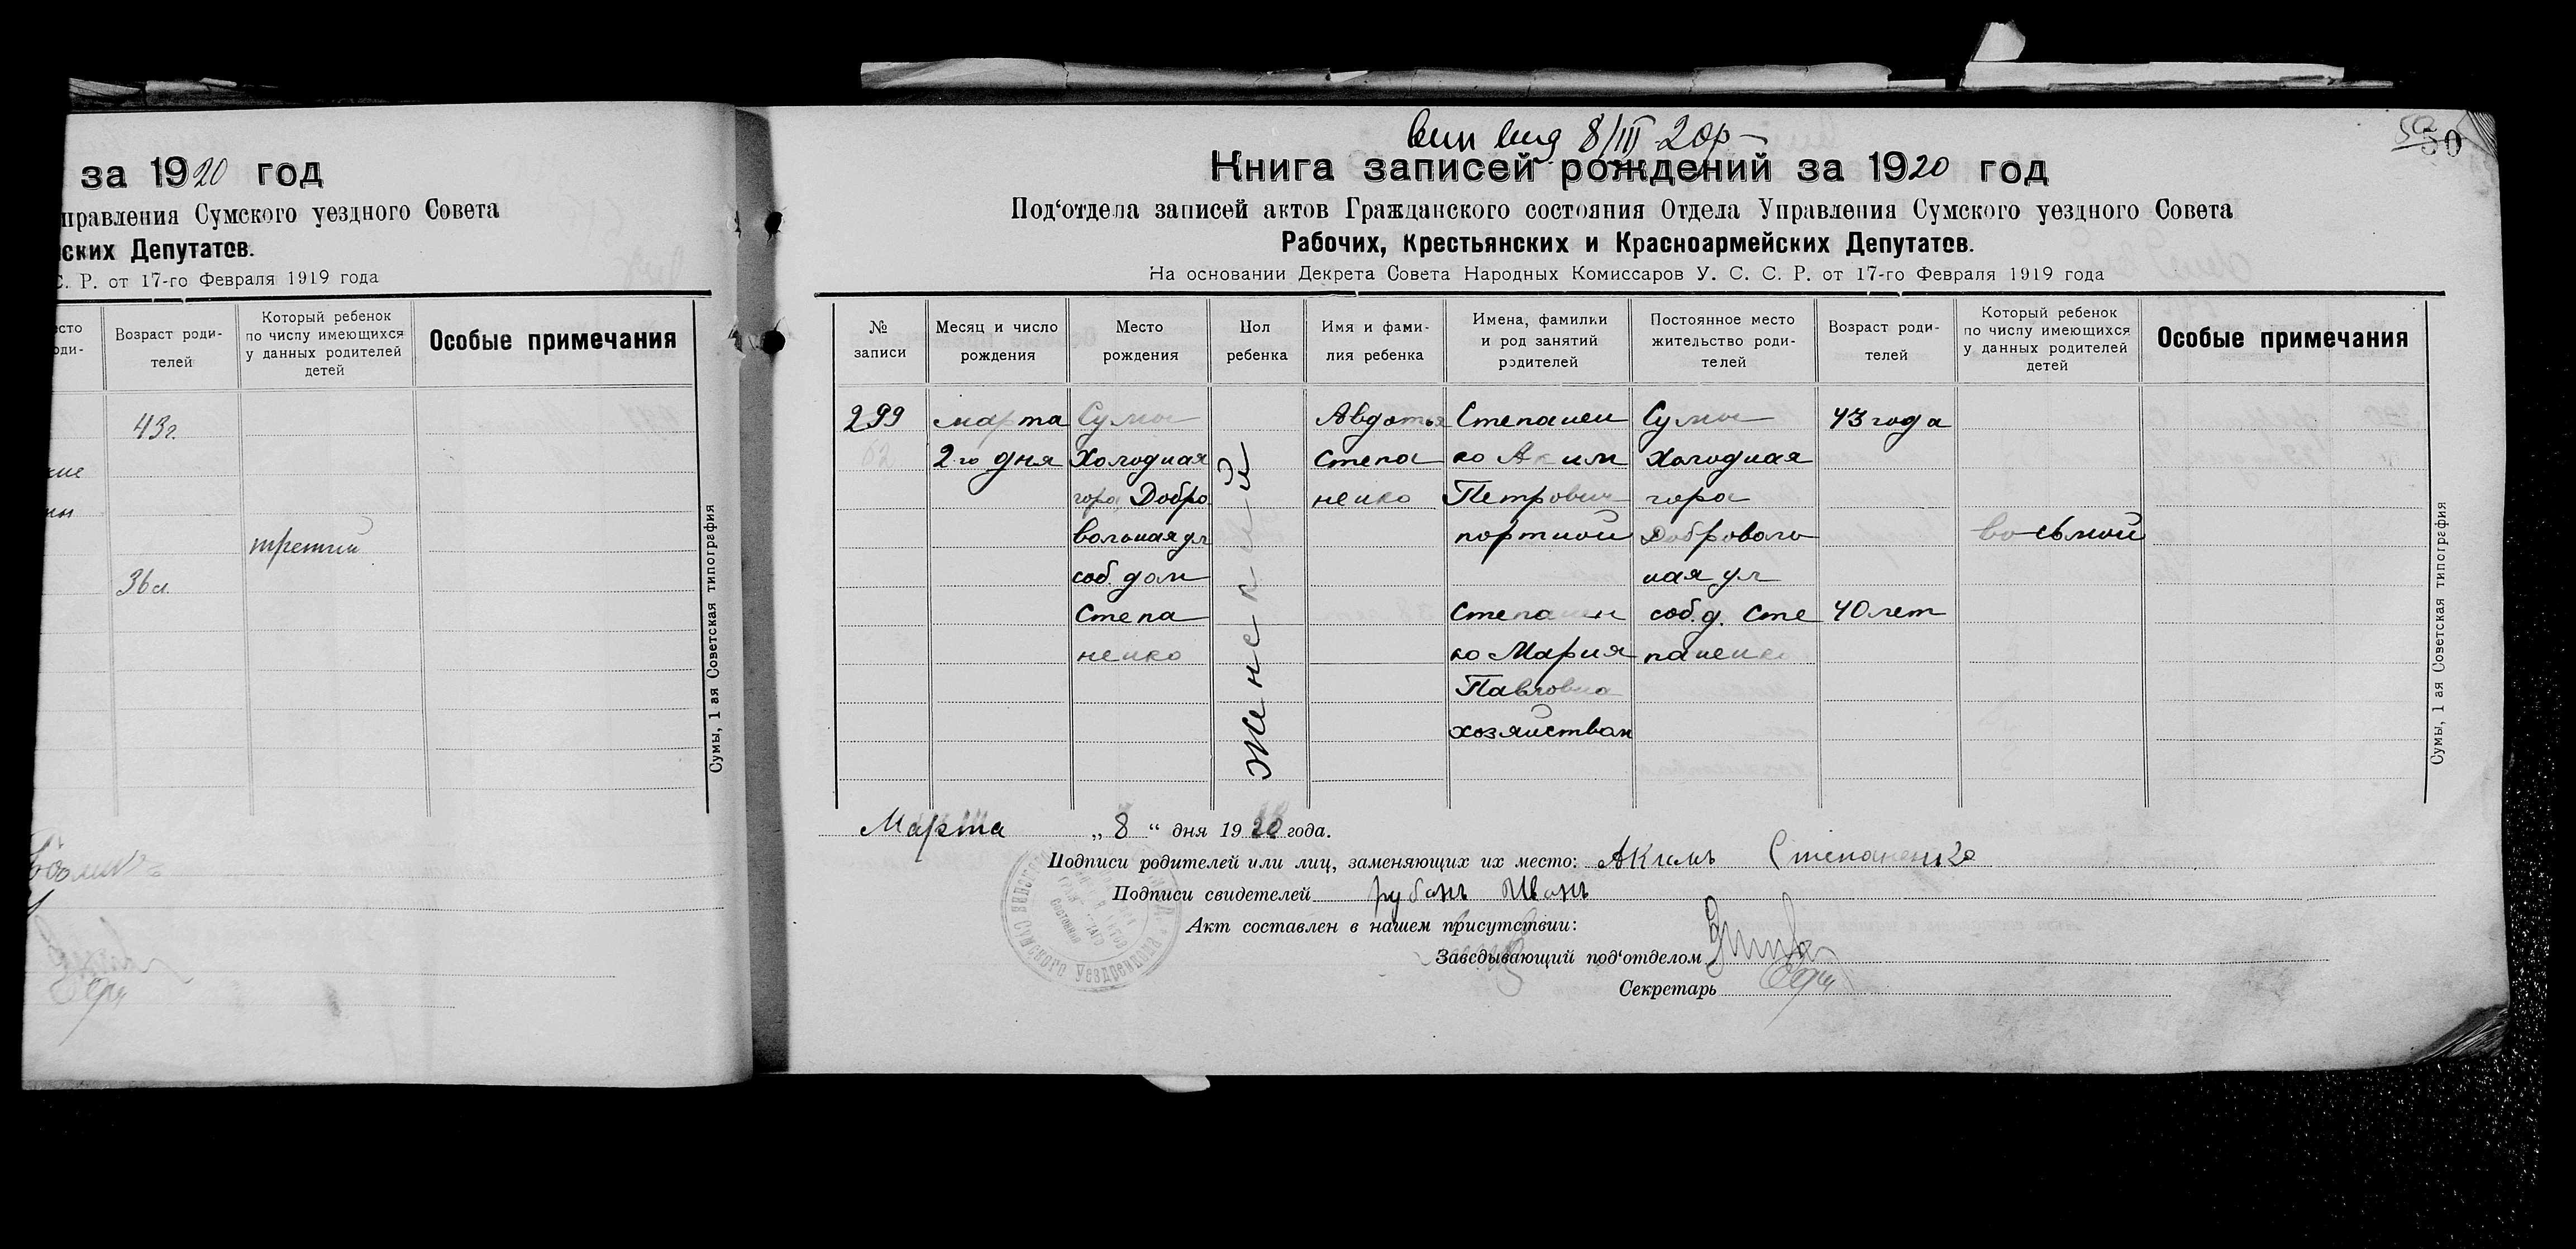 за 1920 год
правления Сумского уездного Совета
ских Депутатов.
С. Р. от 17-го Февраля 1919 года
сто
оди-
Возраст роди-
телей
Который ребенок
по числу имеющихся
у данных родителей
детей
Особые примечания
43 г.
кие
третий
36 л.
Сумы, 1 ая Советская типография
8/III 20 р
50
50
Книга записей рождений за 1920 год
Под‘отдела записей актов Гражданского состояния Отдела Управления Сумского уездного Совета
Рабочих, Крестьянских и Красноармейских Депутатов.
На основании Декрета Совета Народных Комиссаров У. С. С. Р. от 17-го Февраля 1919 года
№
записи
Месяц и число
рождения
Место
рождения
Пол
ребенка
Имя и фами-
лия ребенка
Имена, фамилии
и род занятий
родителей
Постоянное место
жительство роди-
телей
Возраст роди-
телей
Который ребенок
по числу имеющихся
у данных родителей
детей
Особые примечания
299
марта
2-го дня
Сумы
Холодная
гора, Добро
вольная ул
соб. дом
Степа
ненко
женский
Авдотья
Степа
ненко
Степанен
ко Аким
Петрович
портной
Степанен
ко Мария
Павловна
хозяйствам
Сумы
Холодная
гора
Доброволь
ная ул
соб. д. Сте
паненко
43 года
40 лет
восьмой
Сумы, 1 ая Советская типография
Марта „8“ дня 1920 года.
Подписи родителей или лиц, заменяющих их место: Акимъ Степаненко
Подписи свидетелей рубанъ Иванъ
Акт составлен в нашем присутствии:
Заведывающий под‘отделом
Секретарь
Сумского Уездревкома